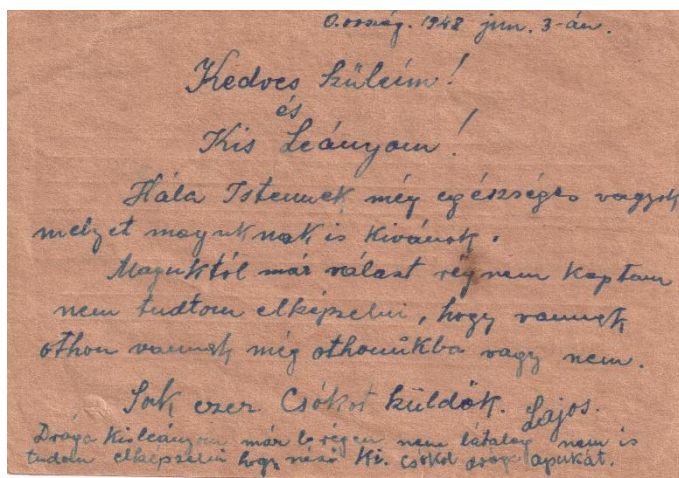 O.ország. 1948 jun. 3-án.
Kedves Szüleim!
és
Kis Leányom!
Hála Istennek még egészséges vagyok
melyet maguknak is kivánok.
Maguktól már válast rég nem kaptam
nem tudtom elképzelni, hogy vannak
othon vannak még othonukba vagy nem.
Sok ezer Csókot küldök. Lajos.
Drága Kisleányom már régen nem látalag nem is
tudom elképzelni hogy nézel Ki. Csókol drága apukát.